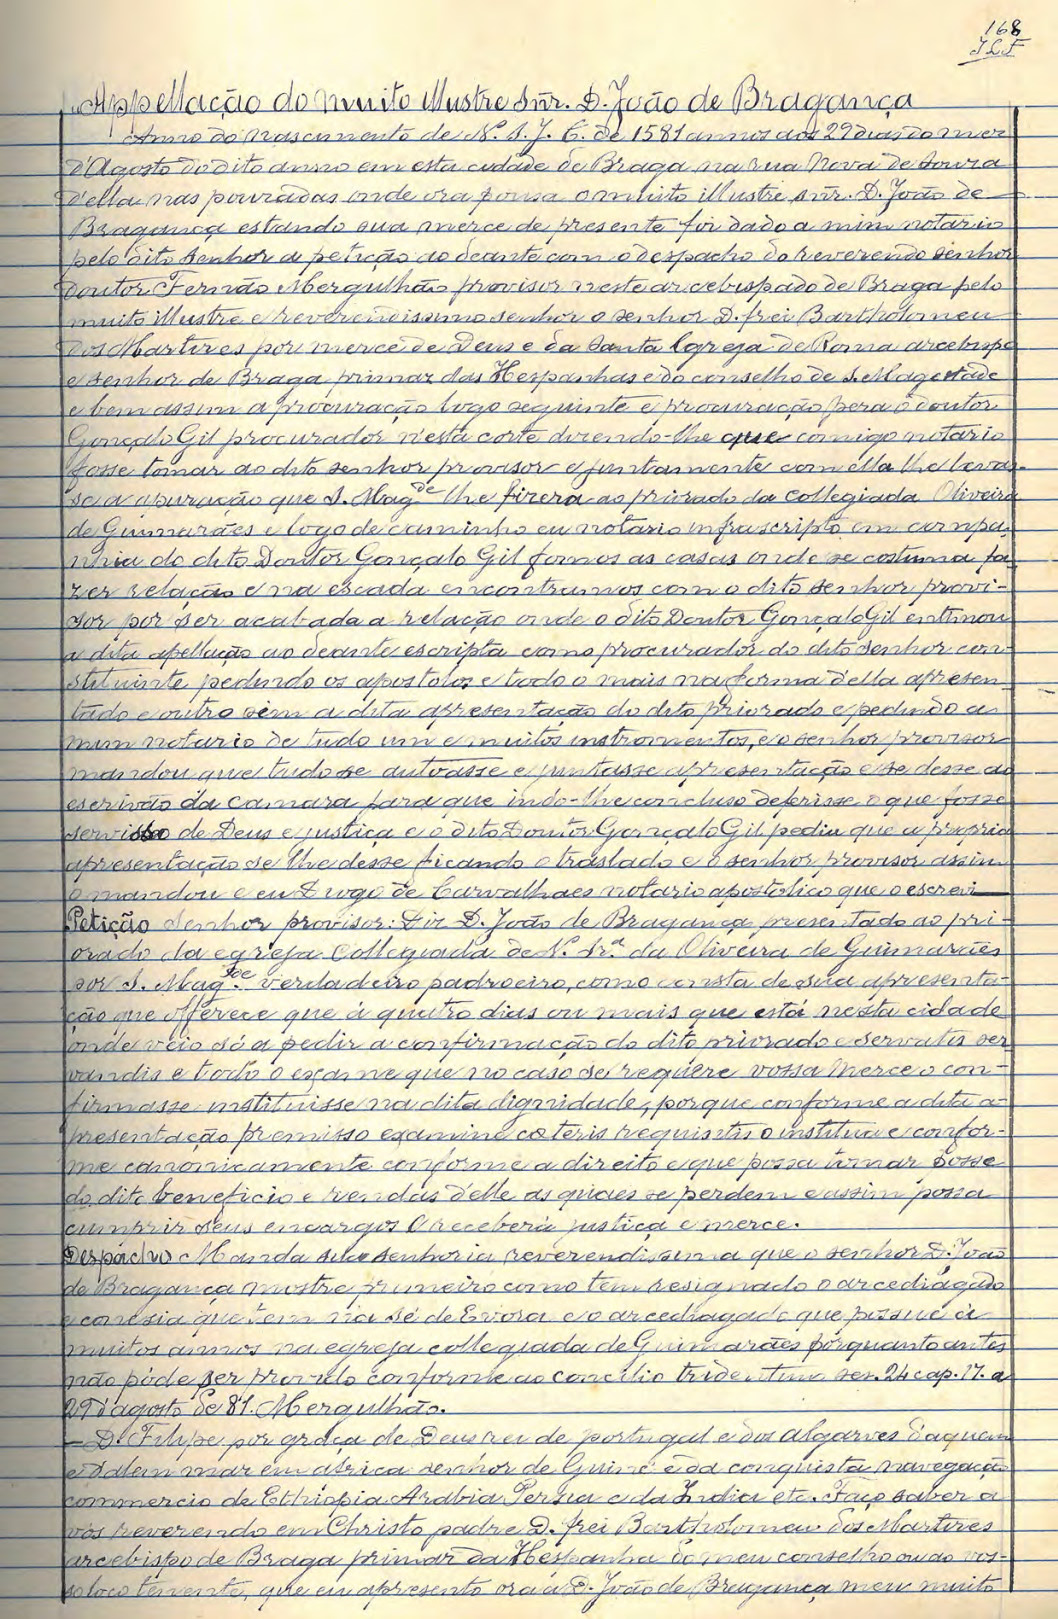 168
J L F
Appellação do muito illustre Snr. D. João de Bragança
Anno do nascimento de N. S. J. C. de 1581 annos aos 29 dias do mez
d'Agosto do dito anno em esta cidade de Braga na rua Nova de Souza
d'ella nas pouzadas onde ora pousa o muito illustre snr. D. João de
Bragança estando sua merce de presente foi dado a mim notario
pelo dito senhor a petição ao deante com o despacho do reverendo senhor
doutor Fernão Mergulhão provisor neste arcebispado de Braga pelo
muito illustre e reverendissimo senhor o senhor D. frei Bartholomeu
dos Martires por merce de Deus e da Santa Egreja de Roma arcebispo
e senhor de Braga primaz das Hespanhas e do conselho de S. Magestade
e bem assim a procuração logo seguinte e procuração pera o doutor
Gonçalo Gil procurador n'esta corte dizendo-lhe que comigo notario
fosse tomar ao dito senhor provisor e juntamente com ella lhe levas-
se a apuração que S. Mag.de lhe fizera ao priorado da Collegiada Oliveira
de Guimarães e logo de caminho eu notario infrascripto em compa-
nhia do dito Doutor Gonçalo Gil fomos as casas onde se costuma fa-
zer relação e na escada encontramos com o dito senhor provi-
sor por ser acabada a relação onde o dito Doutor Gonçalo Gil entimou
a dita apellação ao deante escripta como procurador do dito senhor con-
stituinte pedindo os apostolos e todo o mais na forma d'ella apresen-
tado e outro sem a dita apresentação do dito priorado e pedindo a
mim notario de tudo um e muitos instromentos, e o senhor provisor
mandou que tudo se autoasse e juntasse apresentação e se desse ao
escrivão da camara para que indo-lhe concluso deferisse o que fosse
serviço de Deus e justiça e o dito Doutor Gonçalo Gil pediu que a propria
apresentação se lhe desse ficando o traslado e o senhor provisor assim
o mandou e eu Diogo de Carvalhaes notario apostolico que o escrevi
Petição Senhor provisor: Diz D. João de Bragança presentado ao pri-
orado da egreja Collegiada de N. Sr.a da Oliveira de Guimarães
por S. Mag.de verdadeiro padroeiro, como consta de sua apresenta-
ção que offerece que á quatro dias ou mais que está nesta cidade
onde veio só a pedir a confirmação do dito priorado e servatis ser-
vandis e todo o exame que no caso se requere vossa merce o con-
firmasse instituisse na dita dignidade, porque conforme a dita a-
presentação premisso examine cœteris requisitis o institua e confor-
me canonicamente conforme a direito e que possa tomar posse
do dito beneficio e rendas d'elle as quaes se perdem e assim possa
cumprir seus encargos E receberá justiça e merce.
Despacho Manda sua senhoria reverendissima que o senhor D. João
de Bragança mostre primeiro como tem resignado o arcediagado
e conesia que tem na sé de Evora e o arcediagado que possue á
muitos annos na egreja collegiada de Guimarães porquanto antes
não póde ser provido conforme ao concilio tridentino ses. 24 cap. 17. a
29 d'agosto de 81. Mergulhão.
— D. Filipe por graça de Deus rei de portugal e dos Algarves d'aquem
e dalem mar em africa senhor de Guiné e da conquista navegação
commercio de Ethiopia Arabia Persia e da India etc. Faço saber a
vós reverendo em Christo padre D. frei Bartholomeu dos Martires
arcebispo de Braga primaz da Hespanha do meu conselho ou ao vos-
so loco tenente, que eu apresento ora a D. João de Bragança meu muito